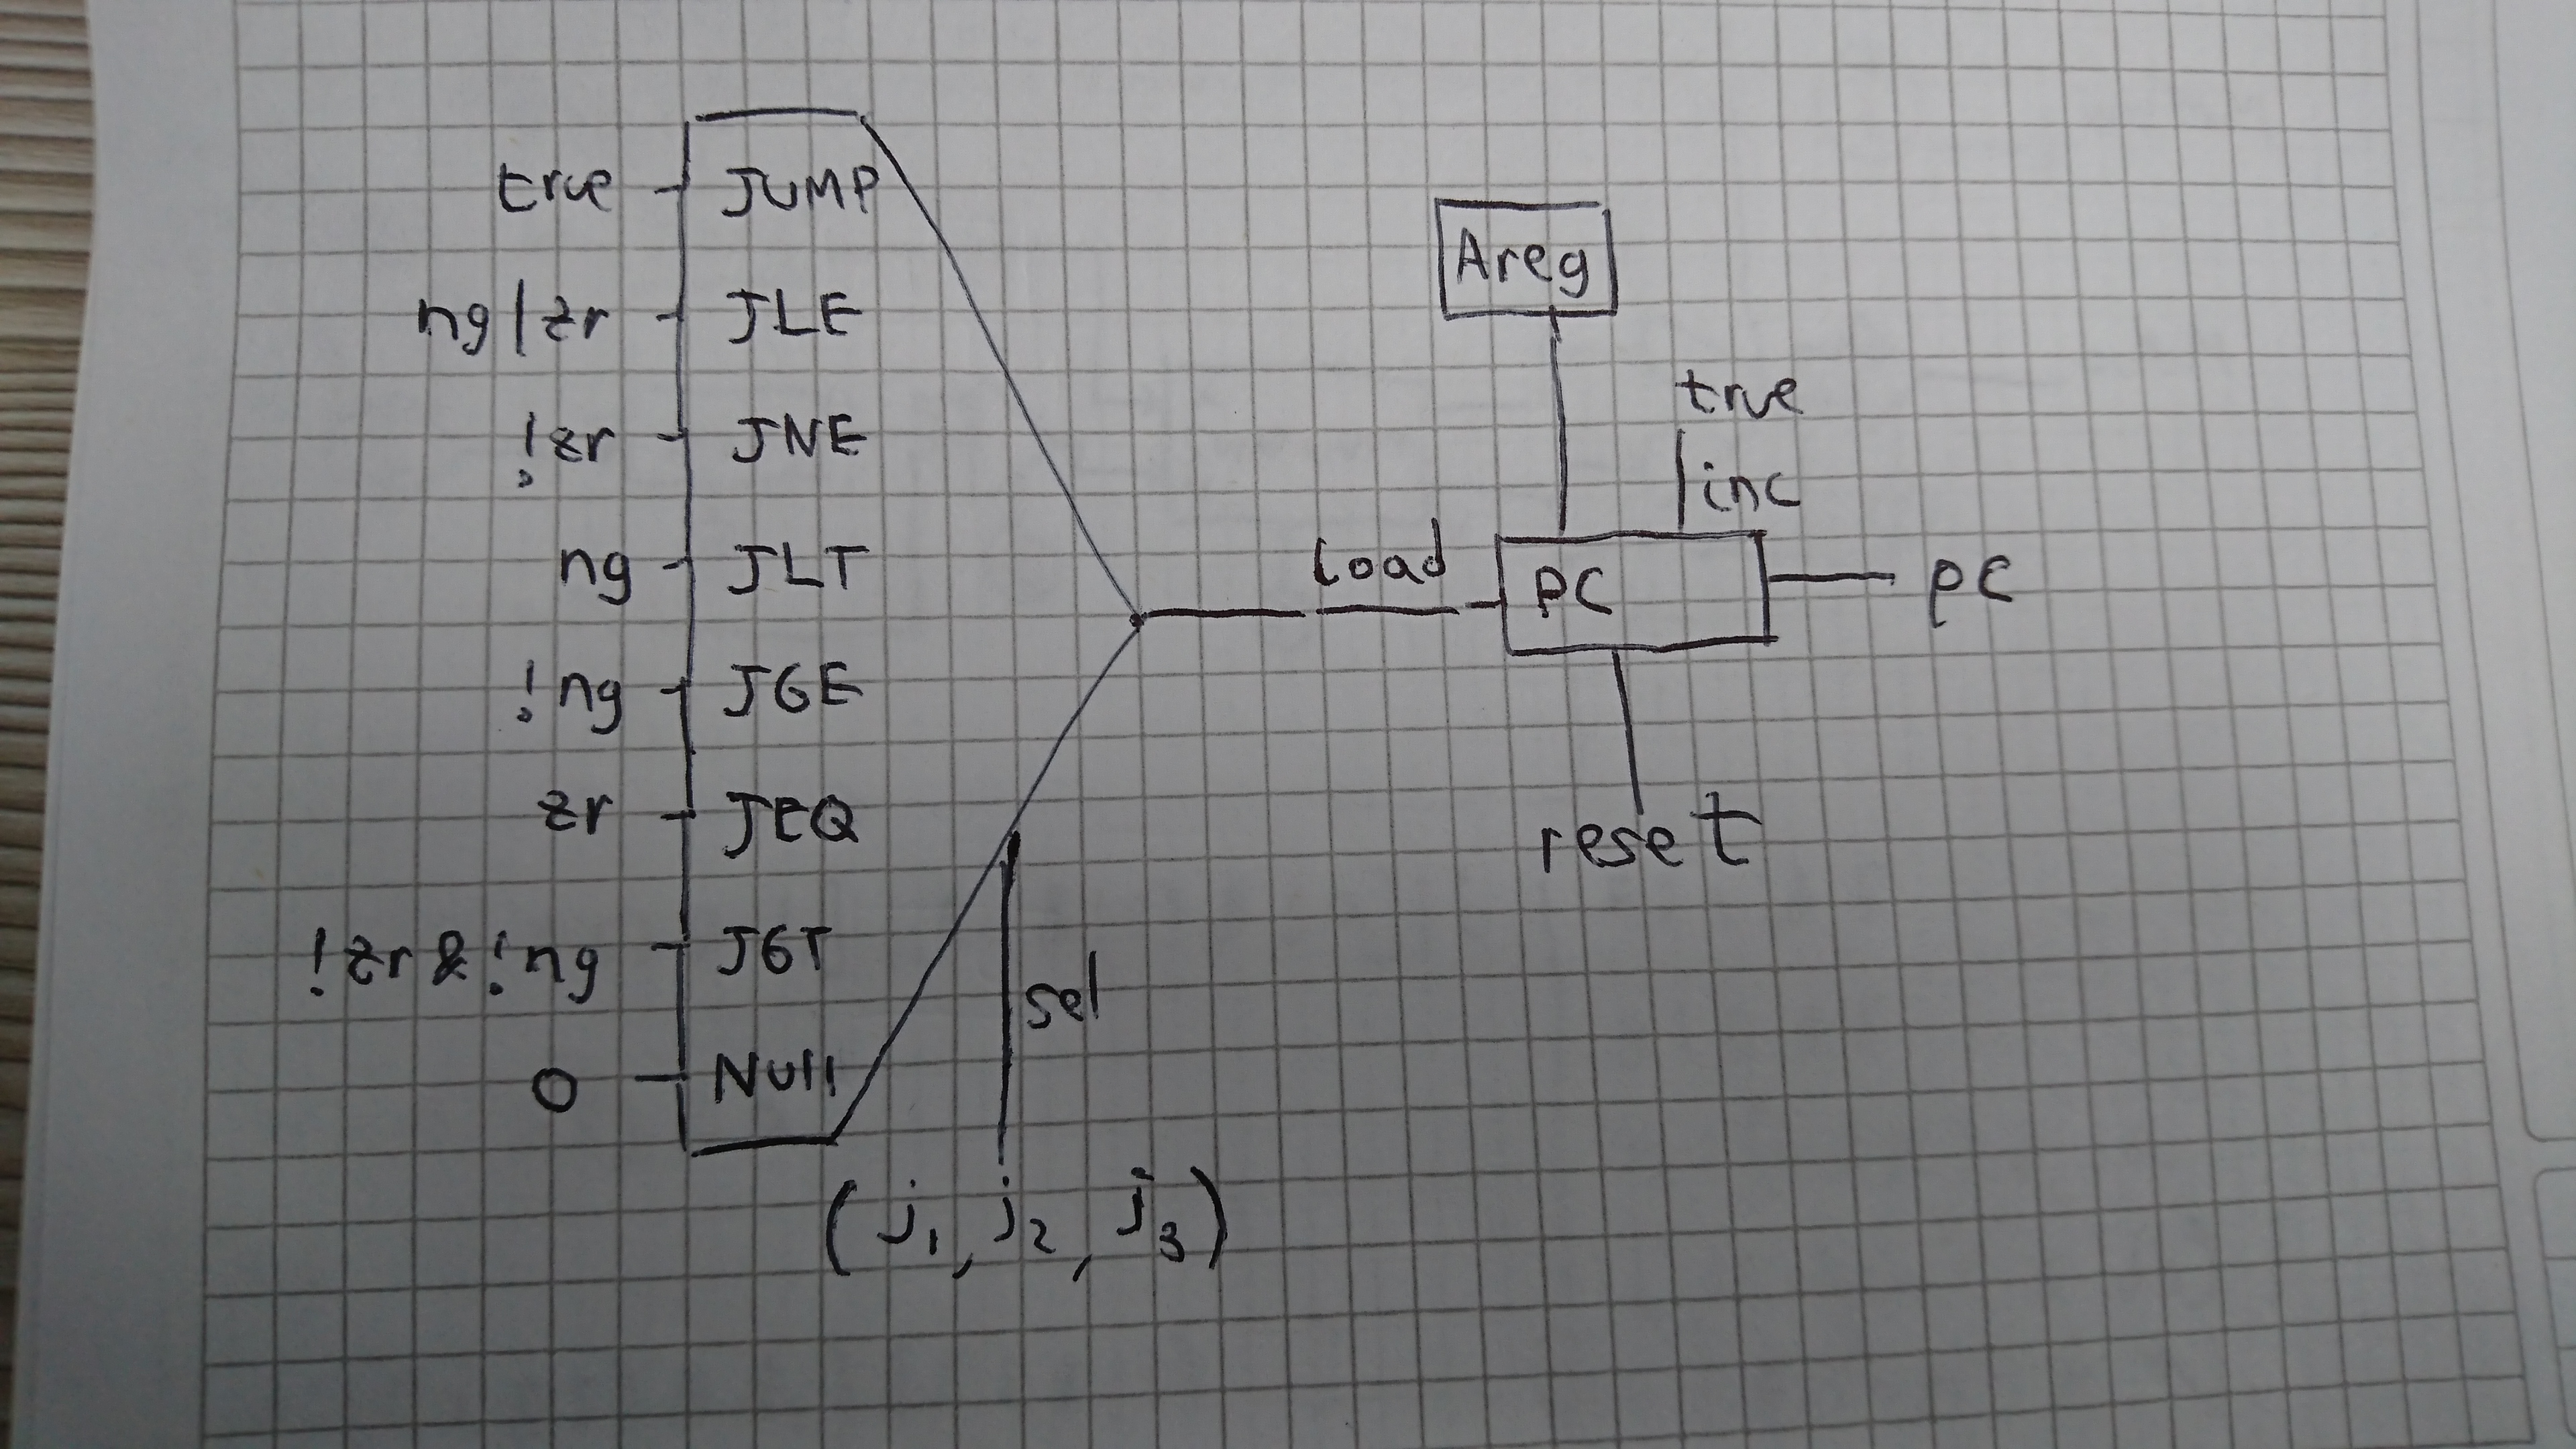 true JUMP
ng|zr JLE
!zr JNE
ng JLT
!ng JGE
zr JEQ
!zr&!ng JGT
0 Null
sel
(j1, j2, j3)
Areg
true
inc
load
PC
pc
reset